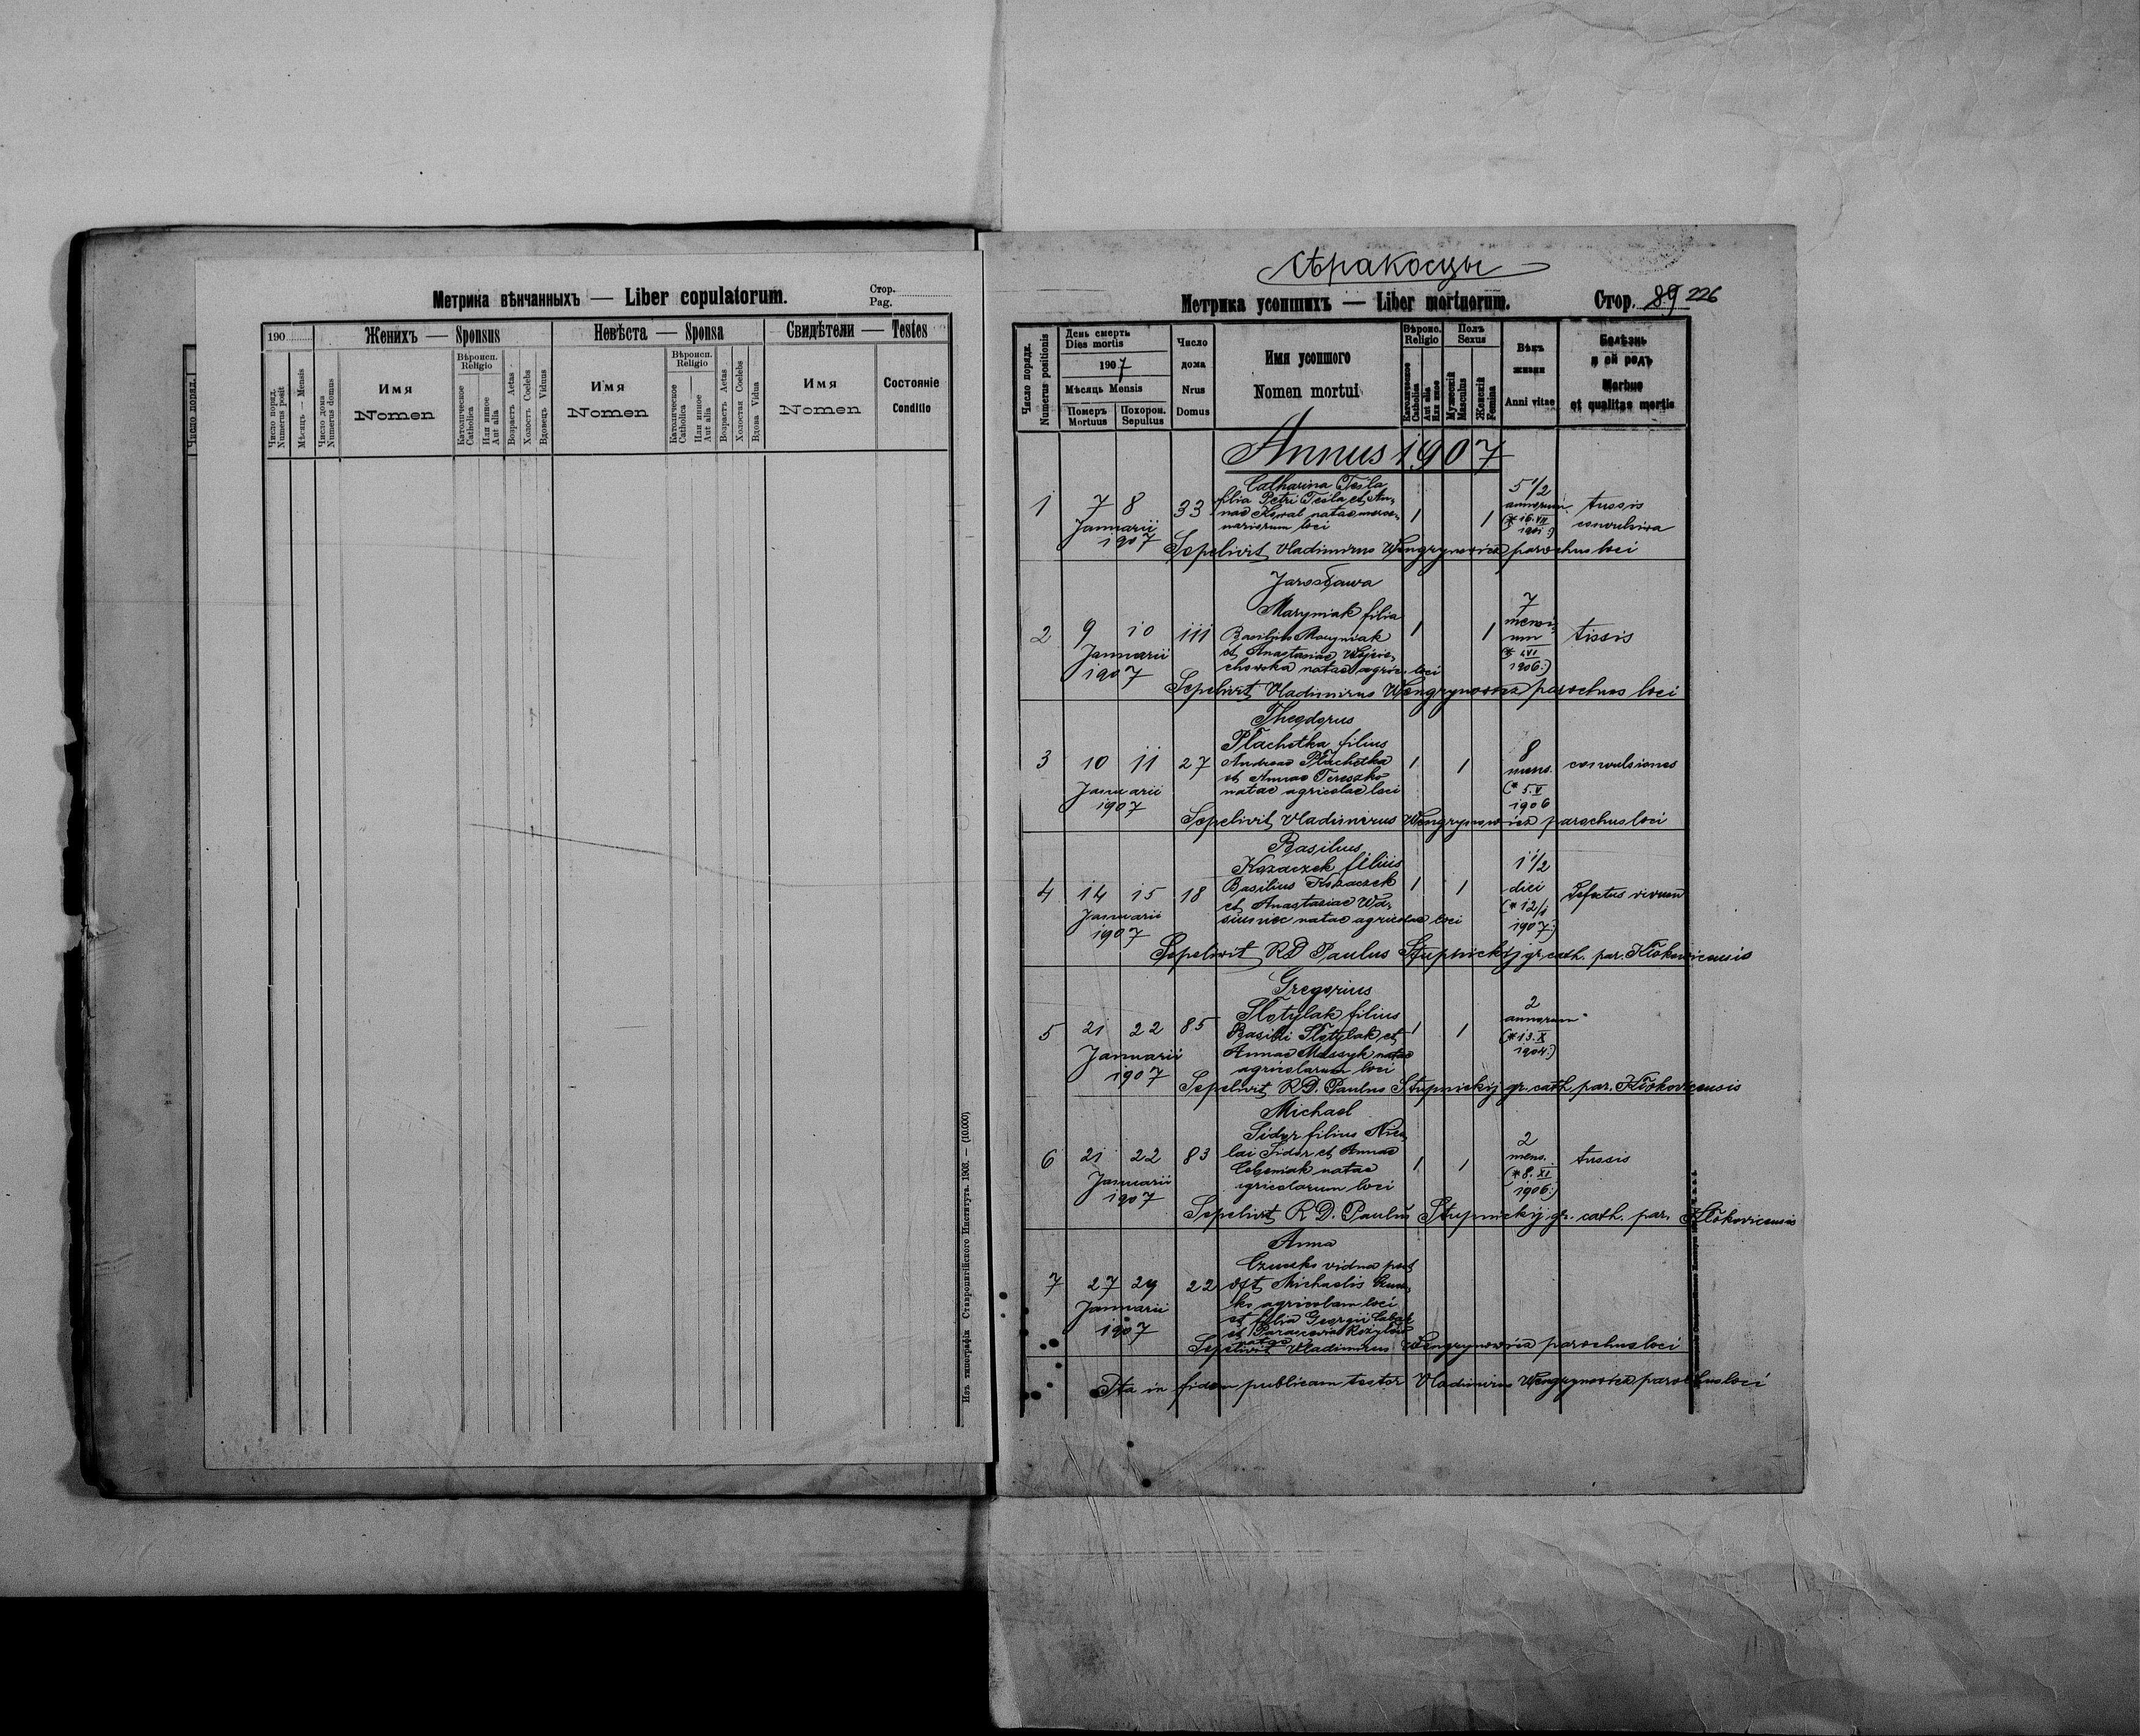 Метрика вѣнчанныхъ — Liber copulatorum.
Стор.
Pag.
190
Женихъ — Sponsus
Невѣста — Sponsa
Свидѣтели — Testes
Число поряд.
Numerus posit
Мѣсяць — Mensis
Число дома
Numerus domus
Имя
Nomen
Вѣроисп.
Religio
Католическое
Catholica
Или инное
Aut alia
Возрастъ Aetas
Холостъ Coelebs
Вдовець Viduus
Имя
Nomen
Вѣроисп.
Religio
Католическое
Catholica
Или инное
Aut alia
Возрастъ Aetas
Холостая Coelebs
Вдова Vidua
Имя
Nomen
Состояніе
Conditio
Число поряд.
Изъ типографіи Ставропигійского Института. 1903. — (10.000)
Сѣракосцы
Метрика усопшихъ — Liber mortuorum.
Стор. 89 226
Число порядк.
Numerus positionis
День смерть
Dies mortis
1907
Мѣсяць Mensis
Померъ
Mortuus
Похорон.
Sepultus
Число
дома
Nrus
Domus
Имя усопшого
Nomen mortui
Вѣроис.
Religio
Католическое
Catholica
Aut alia
Или инное
Полъ
Sexus
Мужескій
Masculus
Женскій
Femina
Вѣкъ
жизни
Anni vitae
Болѣзнь
и ей родъ
Morbus
et qualitas mortis
Annus 1907
1 7 8 33 1 1
Januarii
1907
Catharina Tesla
filia Petri Tesla et An-
nae Kowal natae merce-
nariorum loci
5 1/2
annorum
(* 16.VII
1901:)
tussis
convulsiva
Sepelivit Vladimirus Wengrynowicz parochus loci
2 9 10 111 1 1
Januarii
1907
Jarosława
Maryniak filia
Basilius Maryniak
et Anastasiae Wojcie-
chowska natae agric. loci
7
mensi-
um
1906:)
tissis
Sepelivit Vladimirus Wengrynowicz parochus loci
3 10 11 27 1 1
Januarii
1907
Theodorus
Płachetka filius
Andreae Płachetka
et Annae Tereszko
natae agricolae loci
8
mens.
(* 5.V
1906
convulsiones
Sepelivit Vladimirus Wengrynowicz parochus loci
4 14 15 18 1 1
Januarii
1907
Basilius
Kozaczek filius
Basilius Kozaczek
et Anastasiae
natae agricolae loci
1 1/2
diei
(* 12/1
1907:)
Defectus virium
Sepelivit RD Paulus Stupnickij gr. cath. par. Kłokovicensis
5 21 22 85 1 1
Januarii
1907
Gregorius
Słotylak filius
Basilii Słotylak et
Annae natae
agricolarum loci
2
annorum
(* 13.X
1904:)
Sepelivit RD. Paulus Stupnickij gr. cath. par. Kłokovicensis
6 21 22 83 1 1
Januarii
1907
Michael
Sidor filius Nico-
lai Sidor et Annae
natae
agricolarum loci
2
mens.
(* 8.XI
1906:)
tussis
Sepelivit R.D. Paulus Stupnickij gr. cath. par. Kłokovicensis
7 27 29 22
Januarii
1907
Anna
vidua post
Michaelis
agricolam loci
et filia Georgii
et
natae
Sepelivit Vladimirus Wengrynowicz parochus loci
Ita in fidem publicam testor Vladimirus Wengrynowicz parochus loci